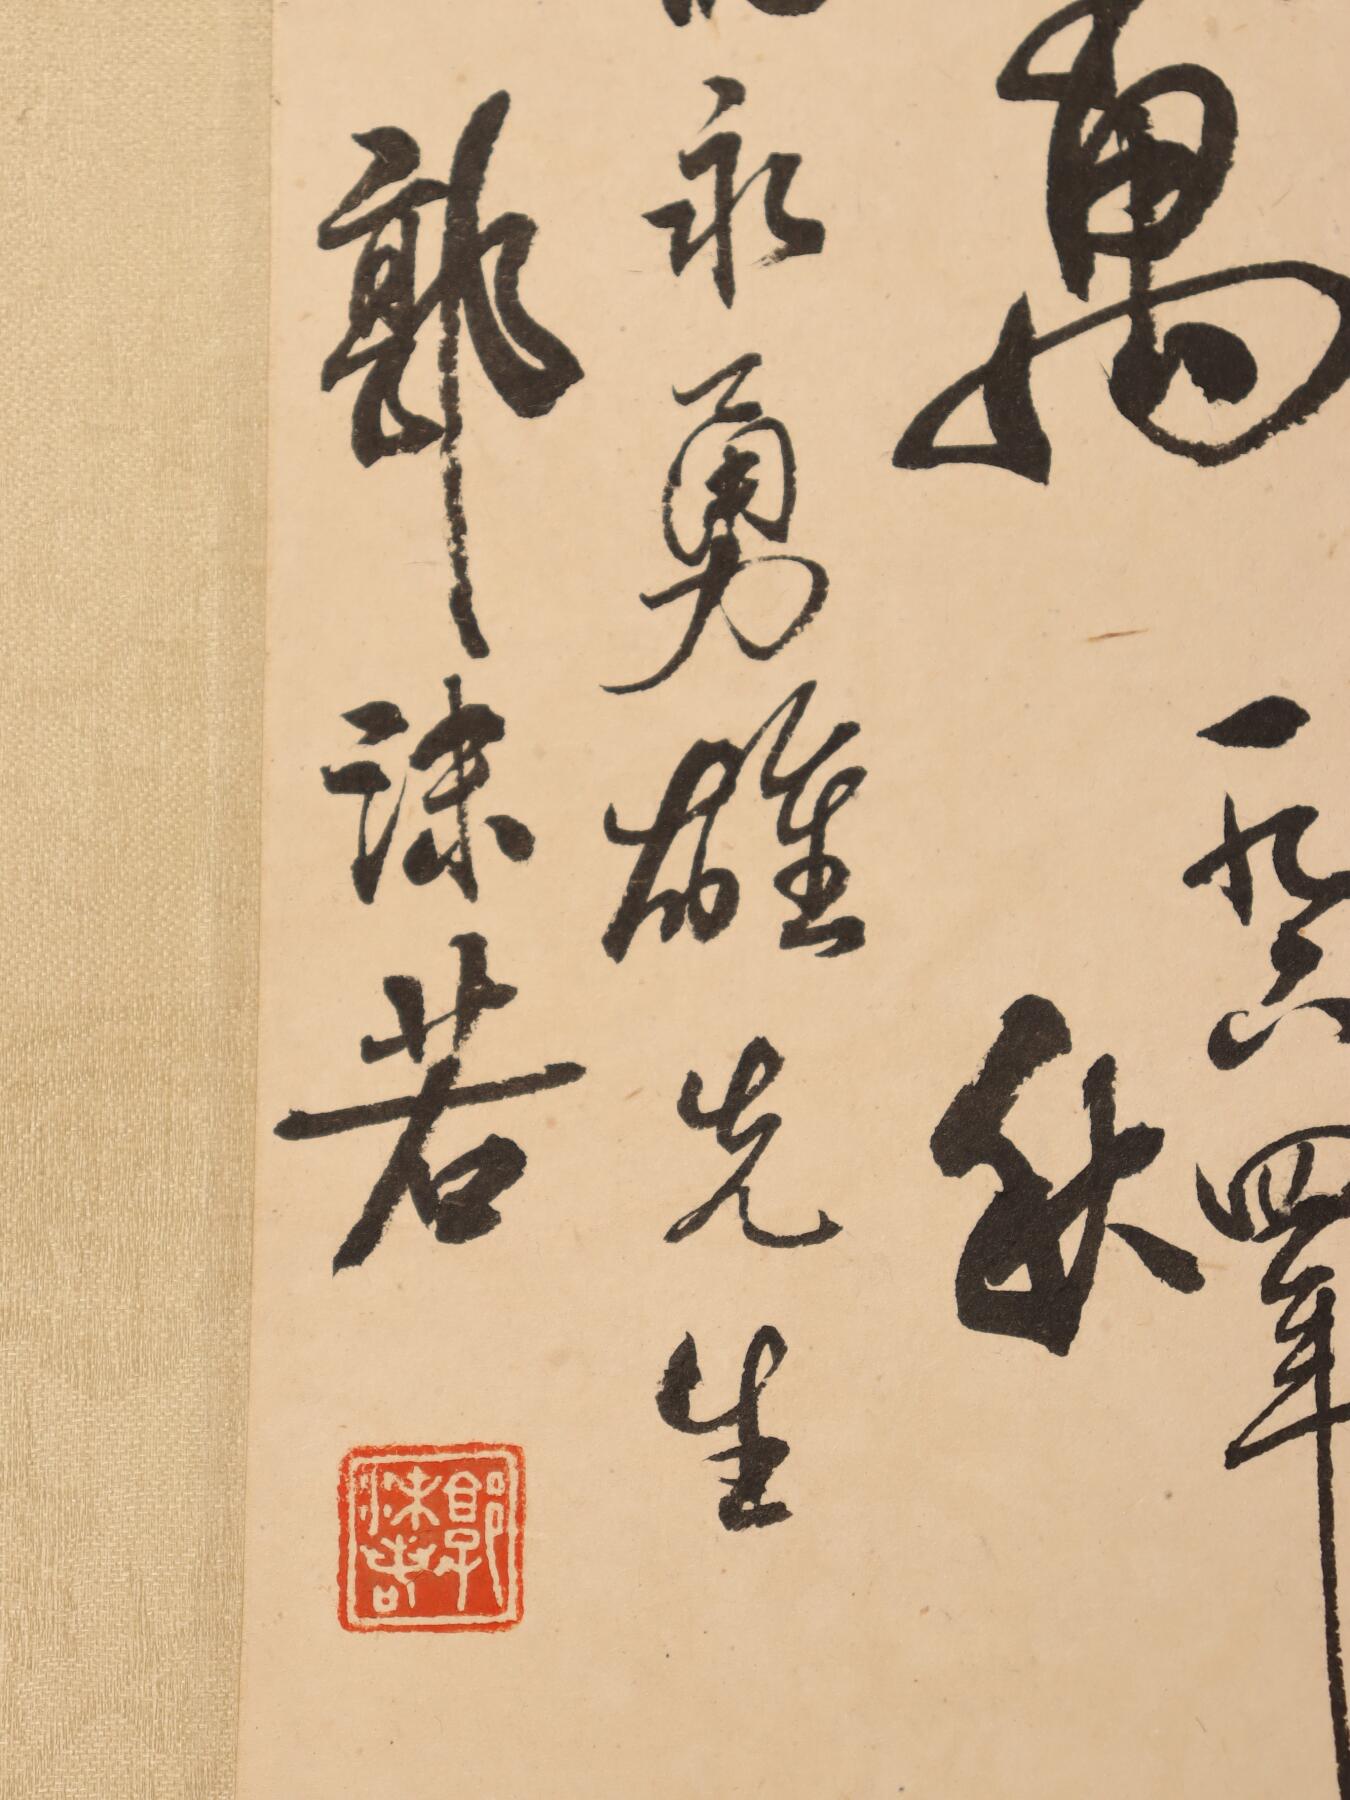 一九六四年
萬秋
永勇雄先生
郭沫若
郭沫若